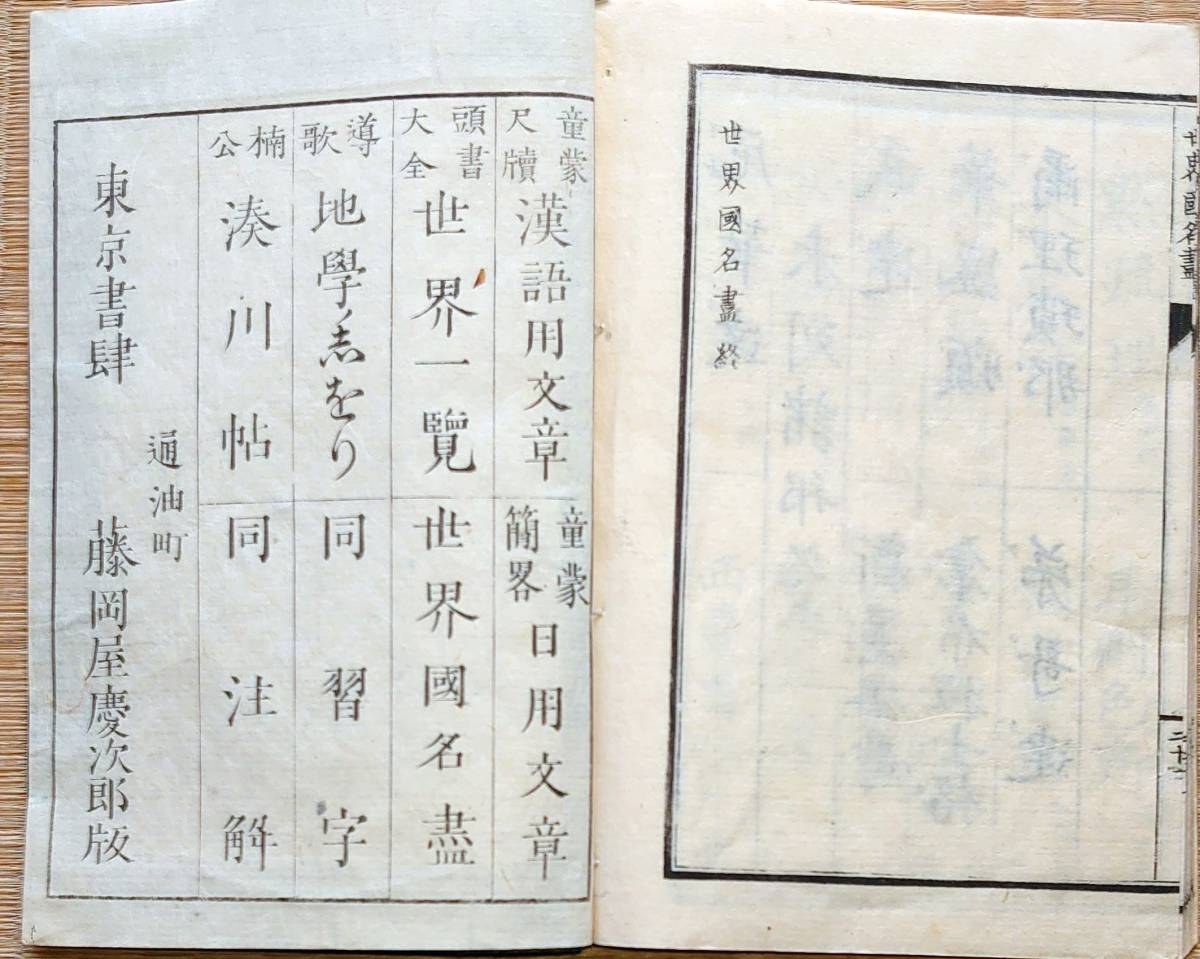 世界國名盡
世界國名盡終
童蒙
尺牘
漢語用文章
童蒙
簡畧
日用文章
頭書
大全
世界一覽
世界國名盡
導
歌
地學志をり
同習字
楠
公
湊川帖
同注解
東京書肆
通油町
藤岡屋慶次郎版